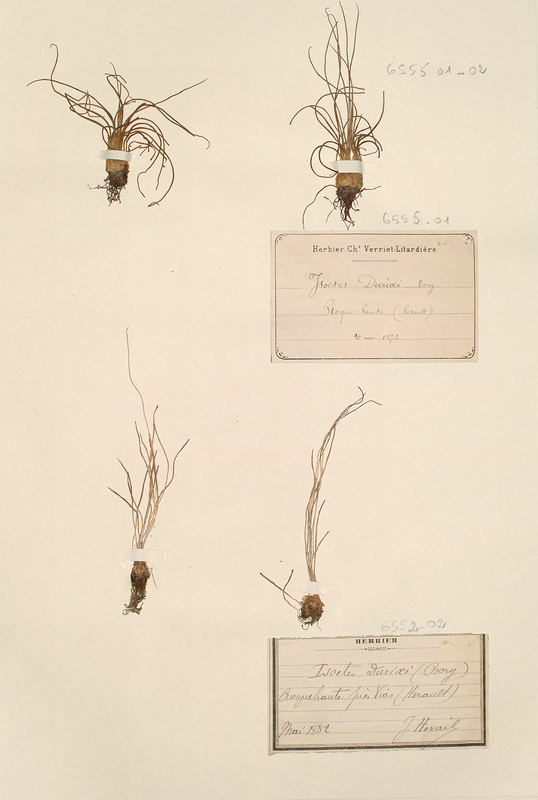 6555 01-02
6555-01
Herbier Chs Verriet-Litardière.
Isoetes Duriœi Bory.
Roque-haute (herault)
30 mai 1872
6552-02
HERBIER
Isoetes Duriœi (Bory)
Roquehaute près Vias (Herault)
Mai 1882 J. Herail